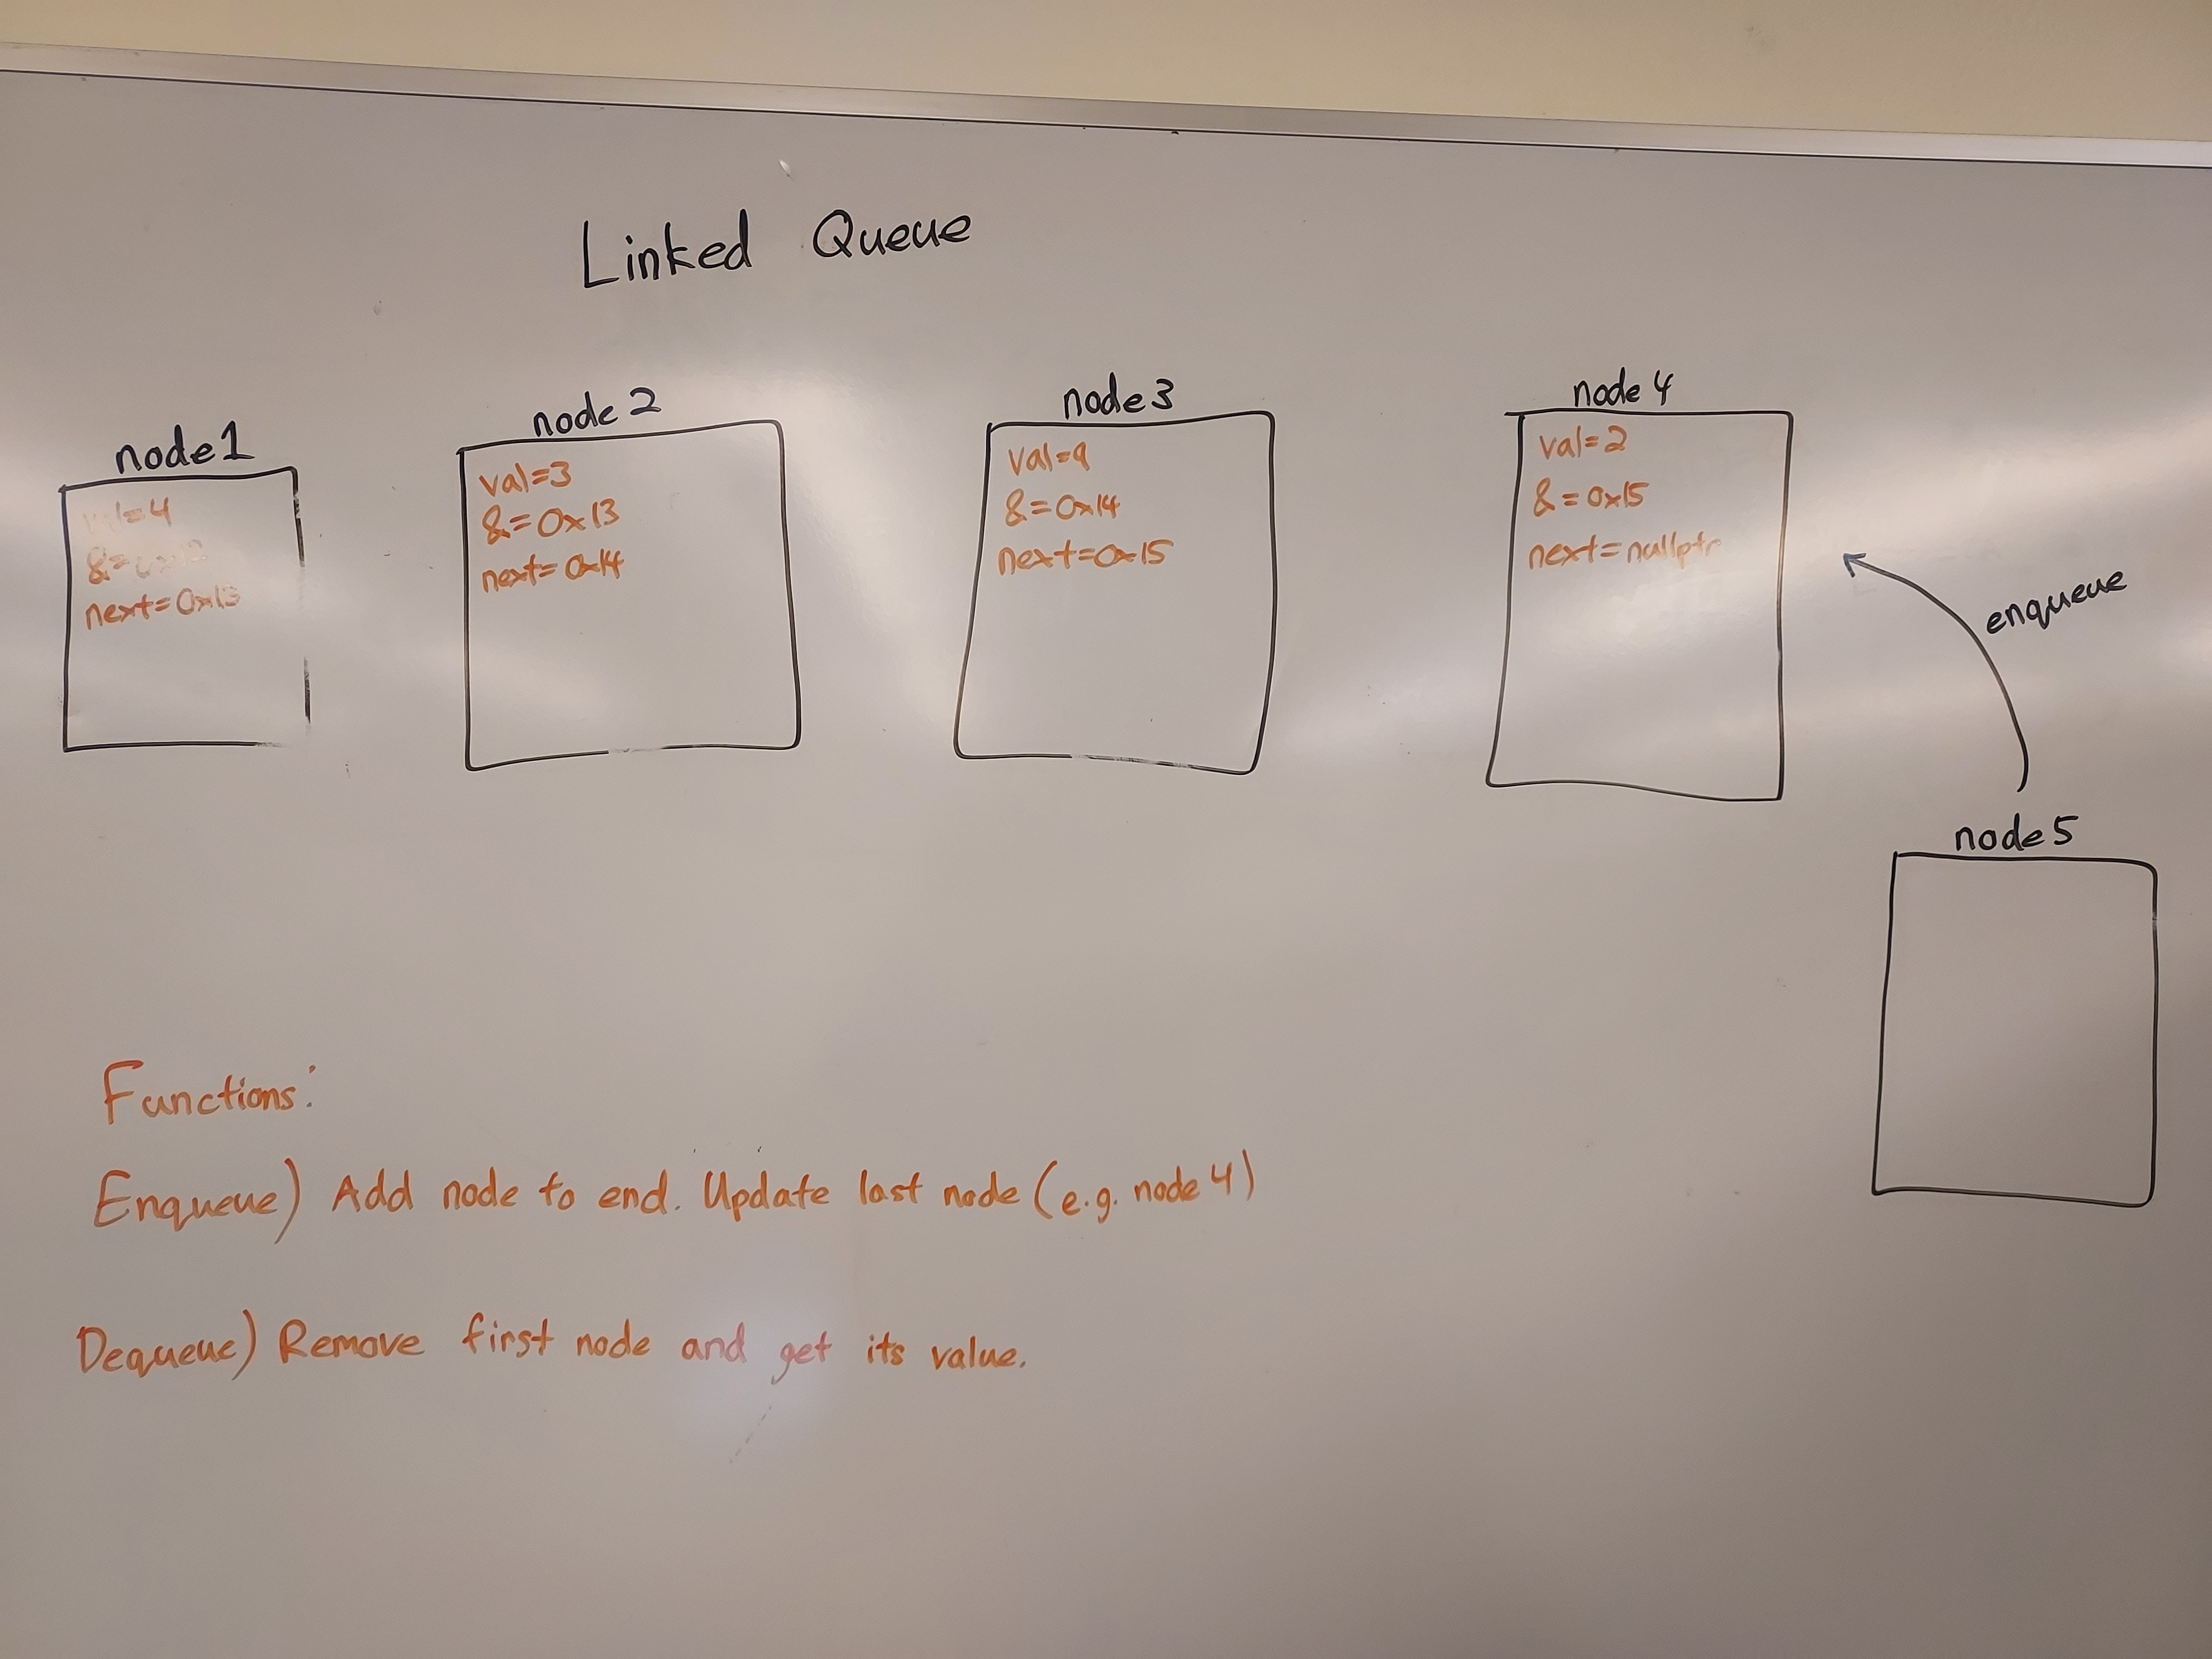 Linked Queue
node 1
val=4
next=0x13
node 2
val=3
&=0x13
next=0x14
node 3
val=9
&=0x14
next=0x15
node 4
val=2
&=0x15
next=nullptr
enqueue
node 5
Functions:
Enqueue) Add node to end. Update last node (e.g. node 4)
Dequeue) Remove first node and get its value.